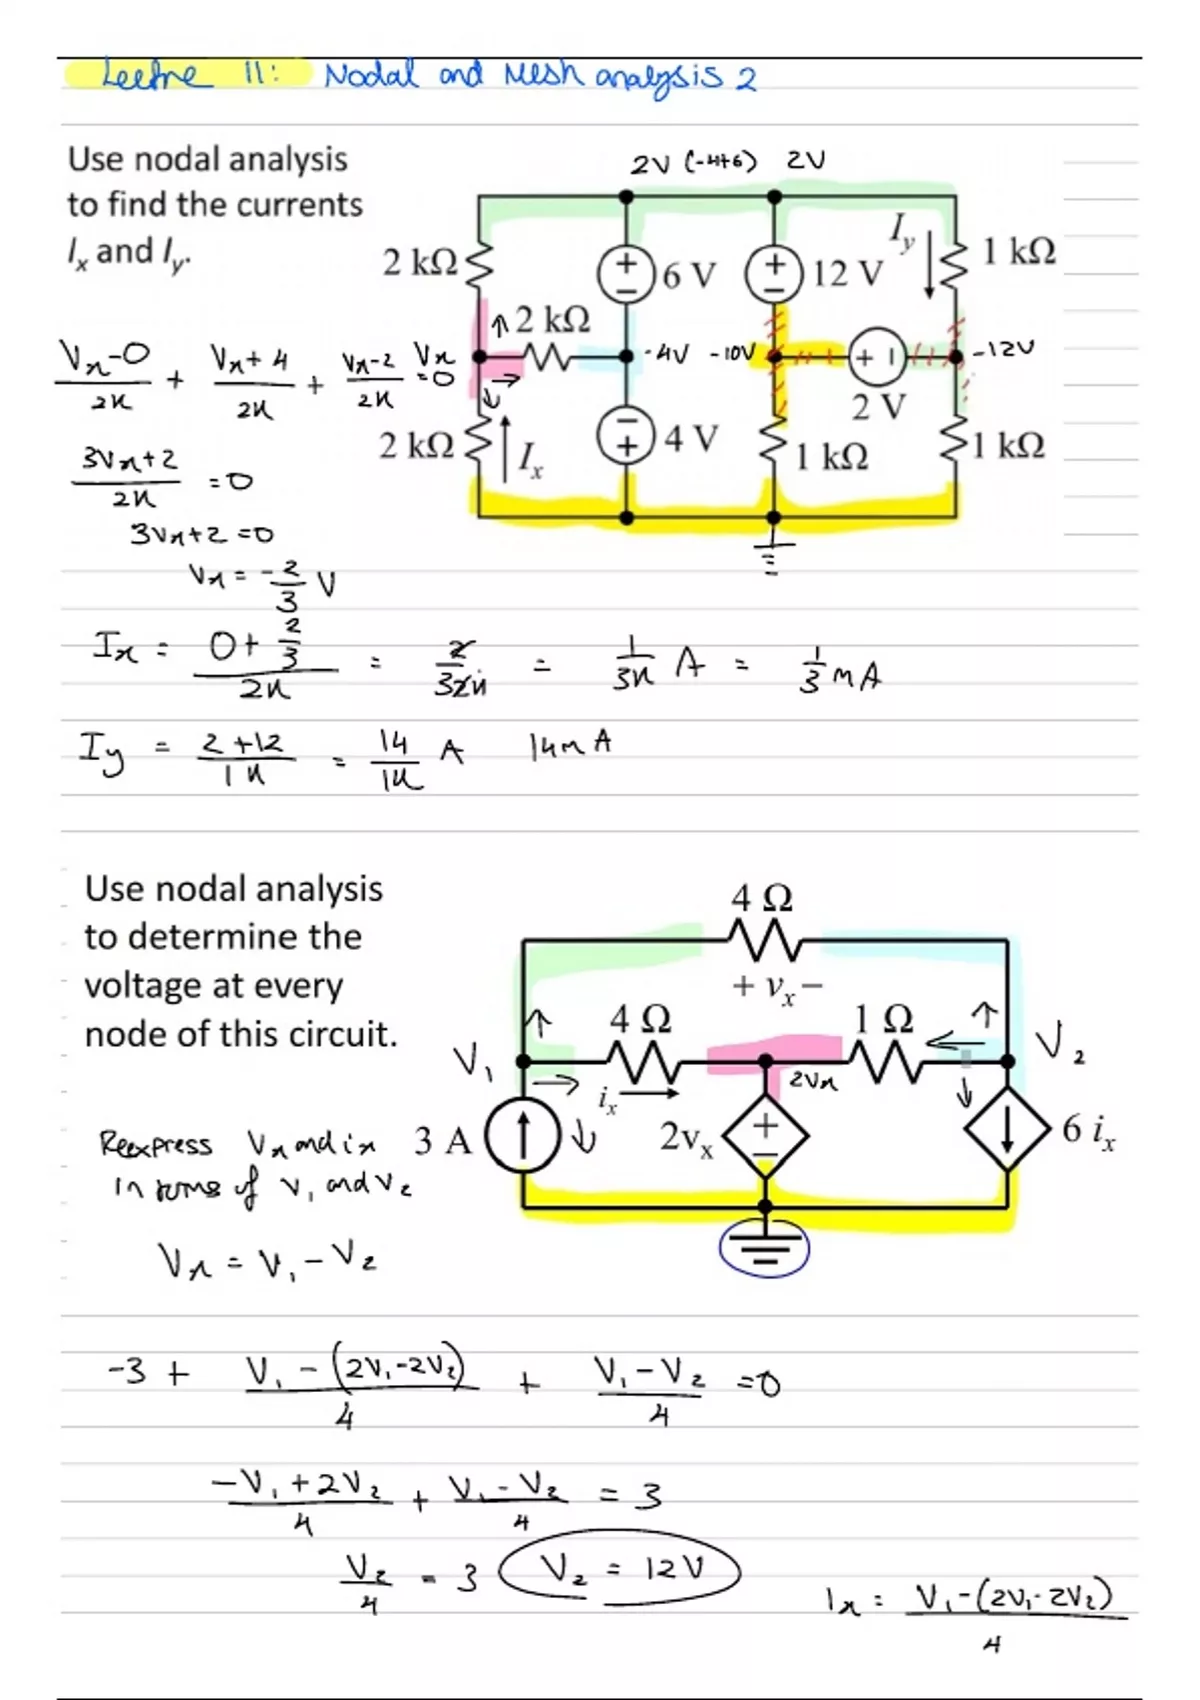 Lecture 11: Nodal and Mesh analysis 2
Use nodal analysis
to find the currents
Ix and Iy.
2V (-4+6) 2V
2 kΩ
6 V
12 V
Iy
1 kΩ
2 kΩ
Vx
-4V
-10V
-12V
2 V
2 kΩ
Ix
4 V
1 kΩ
1 kΩ
Vx-0/2k + Vx+4/2k + Vx-2/2k = 0
3Vx+2/2k = 0
3Vx+2 = 0
Vx = -2/3 V
Ix = 0+2/3/2k = 2/32k = 1/3k A = 1/3 mA
Iy = 2+12/1k = 14/1k A 14mA
Use nodal analysis
to determine the
voltage at every
node of this circuit.
4 Ω
+ vx −
4 Ω
1 Ω
V1
V2
ix
2Vx
3 A
2vx
6 ix
Reexpress Vx and ix
in terms of V1 and V2
Vx = V1 - V2
-3 + V1 - (2V1-2V2)/4 + V1-V2/4 = 0
-V1+2V2/4 + V1-V2/4 = 3
V2/4 = 3 V2 = 12V
Ix = V1-(2V1-2V2)/4